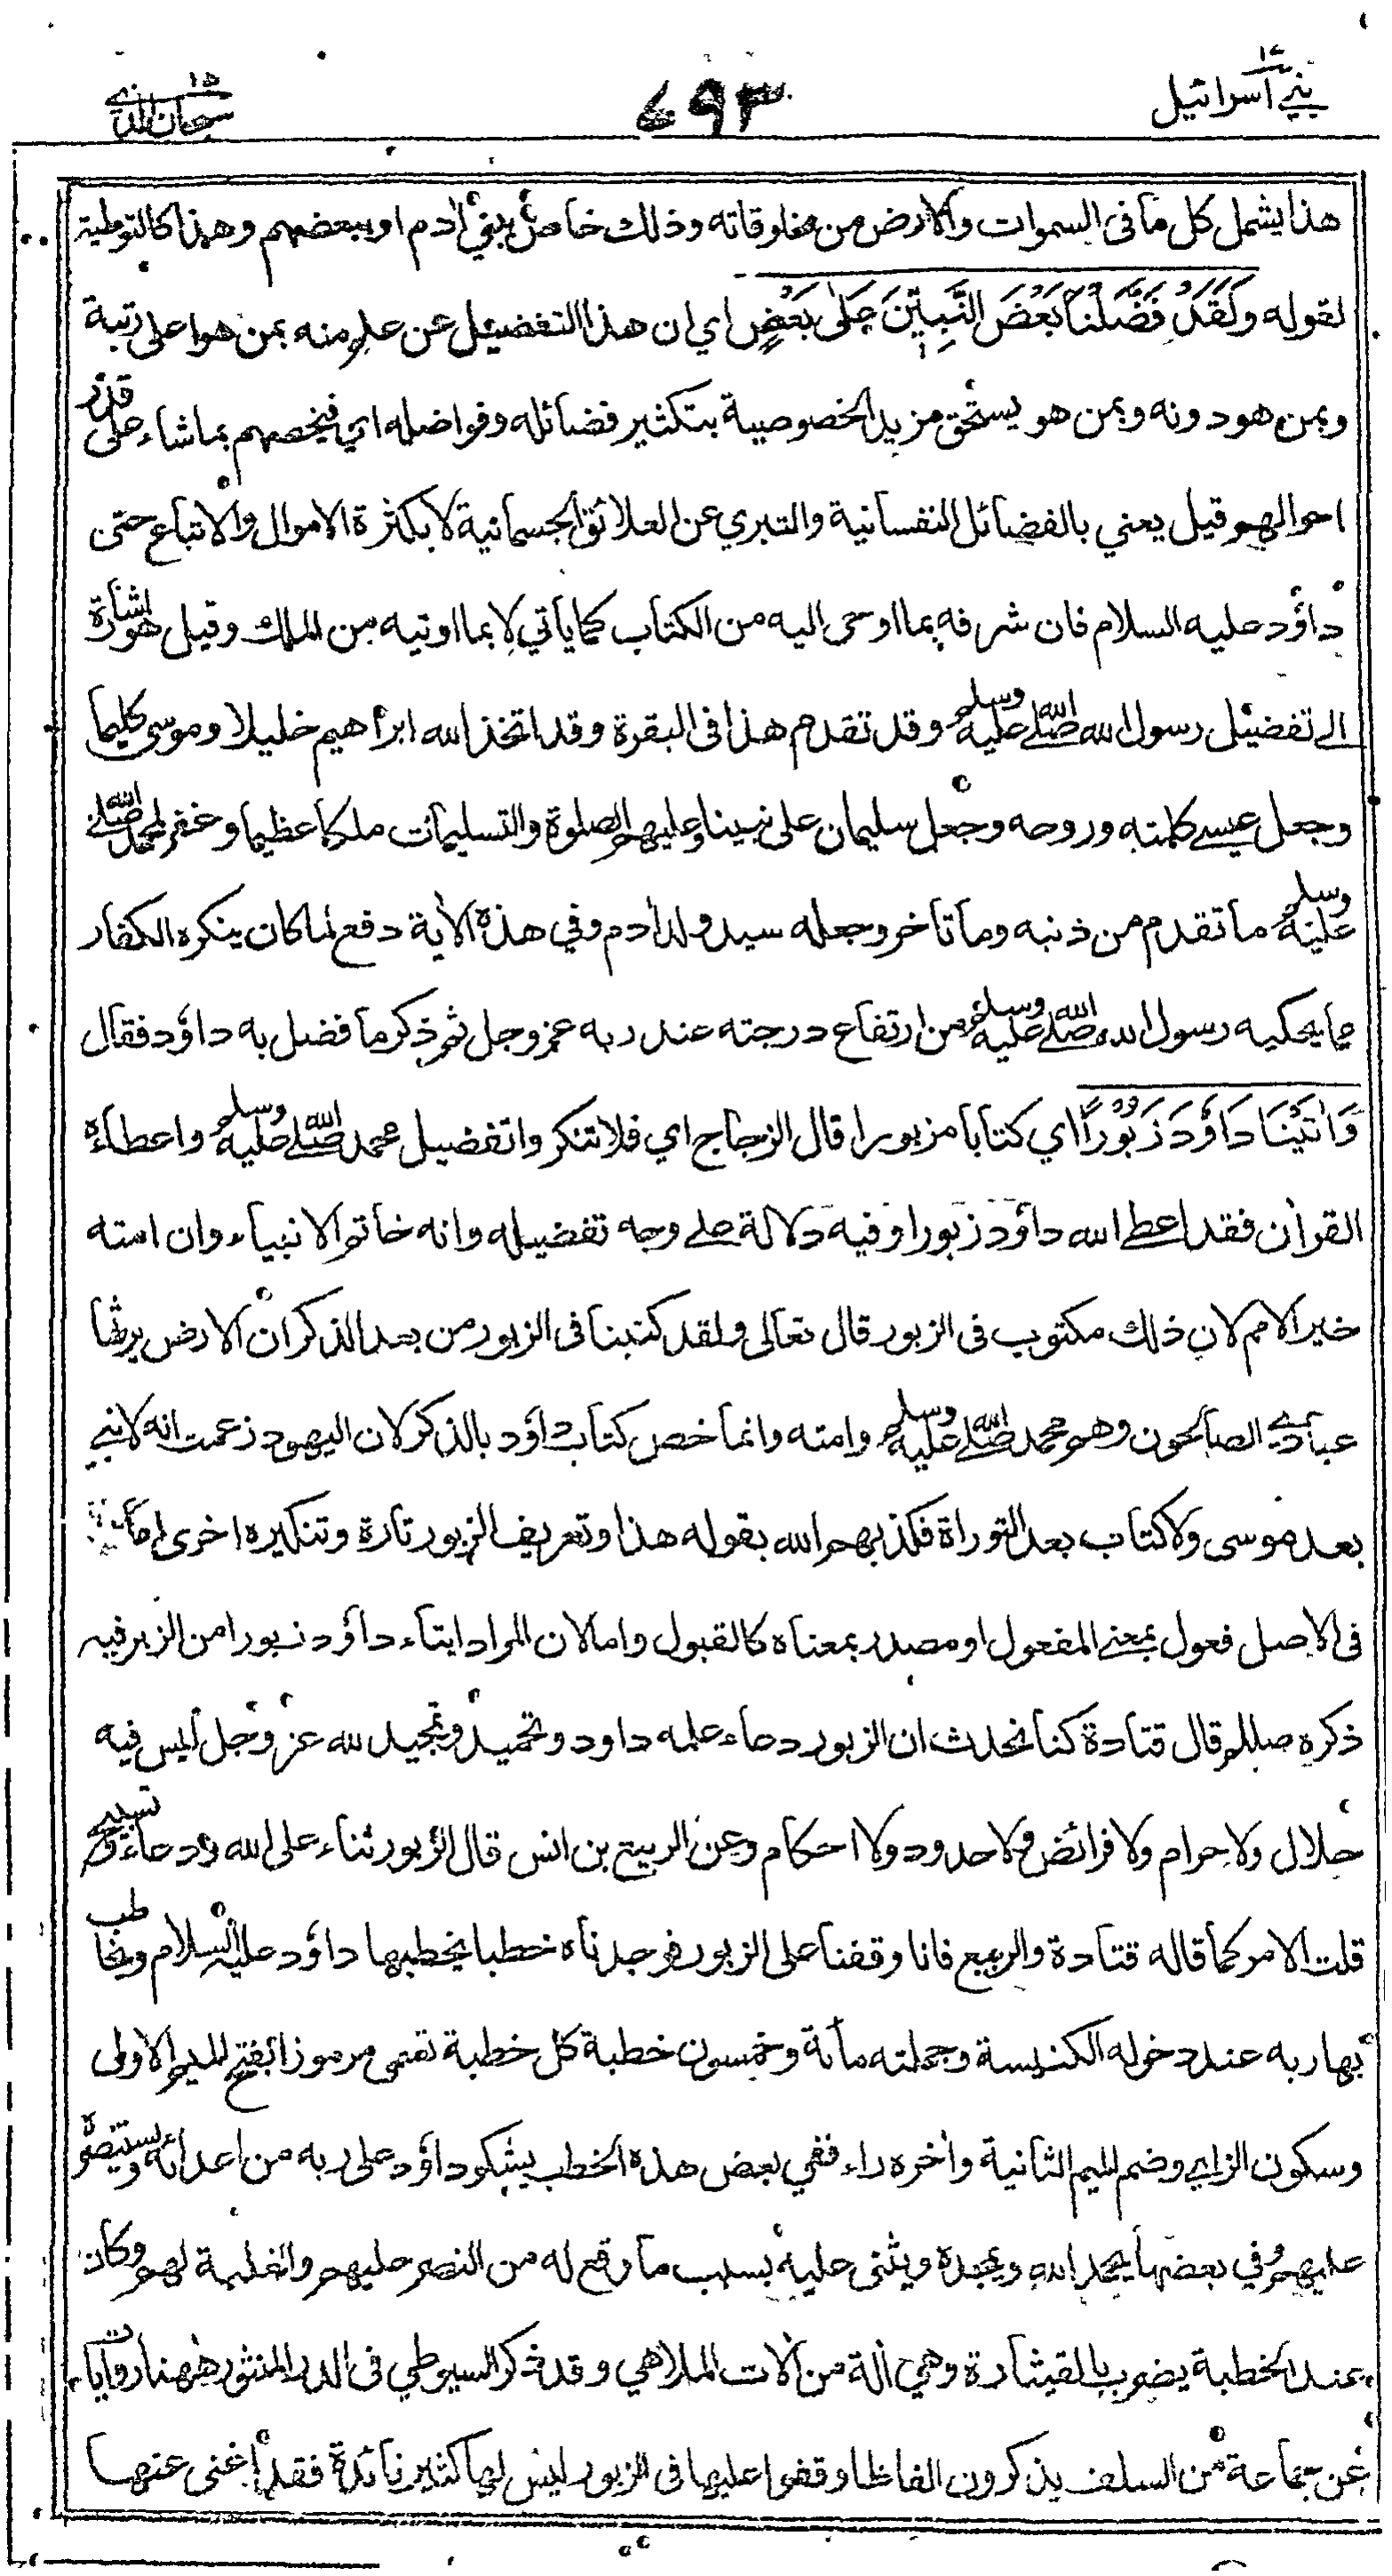 بني اسرائيل ١٧
٦٩٣
سبحان الذي ١٥
هذا يشمل كل ما في السموات والارض من مخلوقاته وذلك خاص ببني اٰدم او ببعضهم وهذا كالتوطية
لقوله وَلَقَدْ فَضَّلْنَا بَعْضَ النَّبِيّٖنَ عَلٰى بَعْضٍ اي ان هذا التفضيل عن علم منه بمن هو اعلى رتبة
وبمن هو دونه وبمن هو يستحق مزيد الخصوصية بتكثير فضائله وفواضله اي فيخصهم بما شاء على قدر
احوالهم وقيل يعني بالفضائل النفسانية والتبري عن العلائق الجسمانية لا بكثرة الاموال والاتباع حتى
داؤد عليه السلام فان شرفه بما اوحى اليه من الكتاب كما ياتي لا بما اوتيه من الملك وقيل هو اشارة
الى تفضيل رسول الله صلى الله عليه وسلم وقد تقدم هذا في البقرة وقد اتخذ الله ابراهيم خليلا وموسى كليما
وجعل عيسى كلمته وروحه وجعل سليمان على نبينا وعليهم الصلوة والتسليمات ملكا عظيما وغفر لمحمد صلى الله
عليه وسلم ما تقدم من ذنبه وما تأخر وجعله سيد ولد اٰدم وفي هذه الاٰية دفع لما كان ينكره الكفار
مما يحكيه رسول الله صلى الله عليه وسلم من ارتفاع درجته عند ربه عز وجل ثم ذكر ما فضل به داؤد فقال
وَاٰتَيْنَا دَاؤدَ زَبُوْرًا اي كتابا مزبورا قال الزجاج اي فلا تنكروا تفضيل محمد صلى الله عليه وسلم واعطاءه
القراٰن فقد اعطى الله داؤد زبورا وفيه دلالة على وجه تفضيله وانه خاتم الانبياء وان امته
خير الامم لان ذلك مكتوب في الزبور قال تعالى ولقد كتبنا في الزبور من بعد الذكر ان الارض يرثها
عبادي الصالحون وهم محمد صلى الله عليه وسلم وامته وانما خص كتاب داؤد بالذكر لان اليهود زعمت انه لا نبي
بعد موسى ولا كتاب بعد التوراة فكذبهم الله بقوله هذا وتعريف الزبور تارة وتنكيره اخرى اما
في الاصل فعول بمعنى المفعول او مصدر بمعناه كالقبول واما لان المراد ايتاء داؤد زبورا من الزبر فيه
ذكره صللم قال قتادة كنا نحدث ان الزبور دعاء علمه داود وتحميد وتمجيد لله عز وجل ليس فيه
حلال ولا حرام ولا فرائض ولا حدود ولا احكام وعن الربيع بن انس قال الزبور ثناء على الله ودعاء وتسبيح
قلت الامر كما قاله قتادة والربيع فانا وقفنا على الزبور فوجدناه خطبا يخطبها داؤد عليه السلام ويخاطب
بها ربه عند دخوله الكنيسة وجملته مائة وخمسون خطبة كل خطبة تسمى مزمورا بفتح الميم الاولى
وسكون الزاي وضم الميم الثانية واٰخره راء ففي بعض هذه الخطب يشكو داؤد على ربه من اعدائه ويستنصره
عليهم وفي بعضها يحمد الله ويمجده ويثنى عليه بسبب ما وقع له من النصر عليهم والغلبة لهم وكان
عند الخطبة يضرب بالقيثارة وهي اٰلة من اٰلات الملاهي وقد ذكر السيوطي في الدر المنثور ههنا روايات
عن جماعة من السلف يذكرون الفاظا وقفوا عليها في الزبور ليس لها كثير فائدة فقد اغنى عنها